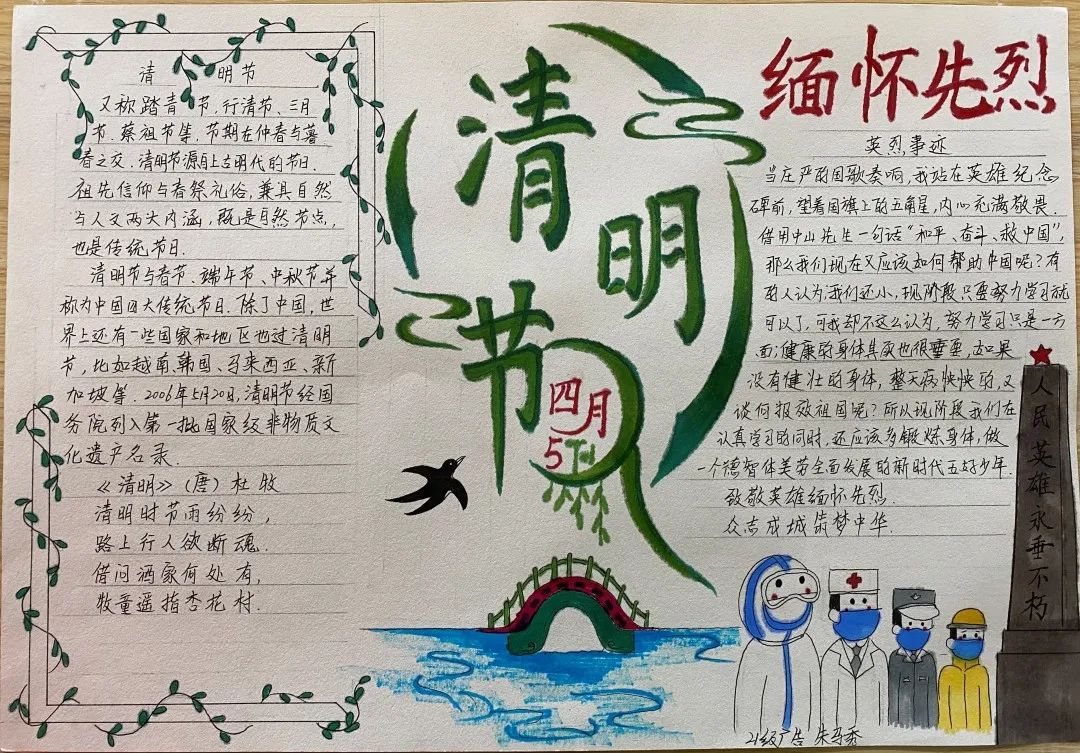 清明节
又称踏青节、行清节、三月
节、祭祖节等、节期在仲春与暮
春之交、清明节源自上古时代的节日、
祖先信仰与春祭礼俗,兼具自然
与人文两大内涵,既是自然节点,
也是传统节日.
清明节与春节、端午节、中秋节并
称为中国四大传统节日.除了中国,世
界上还有一些国家和地区也过清明
节,比如越南、韩国、马来西亚、新
加坡等.2006年5月20日,清明节经国
务院列入第一批国家级非物质文
化遗产名录.
《清明》(唐)杜牧
清明时节雨纷纷,
路上行人欲断魂.
借问酒家何处有,
牧童遥指杏花村.
清明节
四月
5
缅怀先烈
英烈事迹
当庄严的国歌奏响,我站在英雄纪念
碑前,望着国旗上的五角星,内心充满敬畏.
借用中山先生一句话“和平、奋斗、救中国”,
那么我们现在又应该如何帮助中国呢?有
的人认为我们还小,现阶段只要努力学习就
可以了,可我却不这么认为,努力学习只是一方
面;健康的身体其实也很重要,如果
没有健壮的身体,整天病怏怏的,又
谈何报效祖国呢?所以现阶段我们在
认真学习的同时,还应该多锻炼身体,做
一个德智体美劳全面发展的新时代五好少年.
致敬英雄缅怀先烈.
众志成城筑梦中华.
人民英雄永垂不朽
21级广告 朱马秀